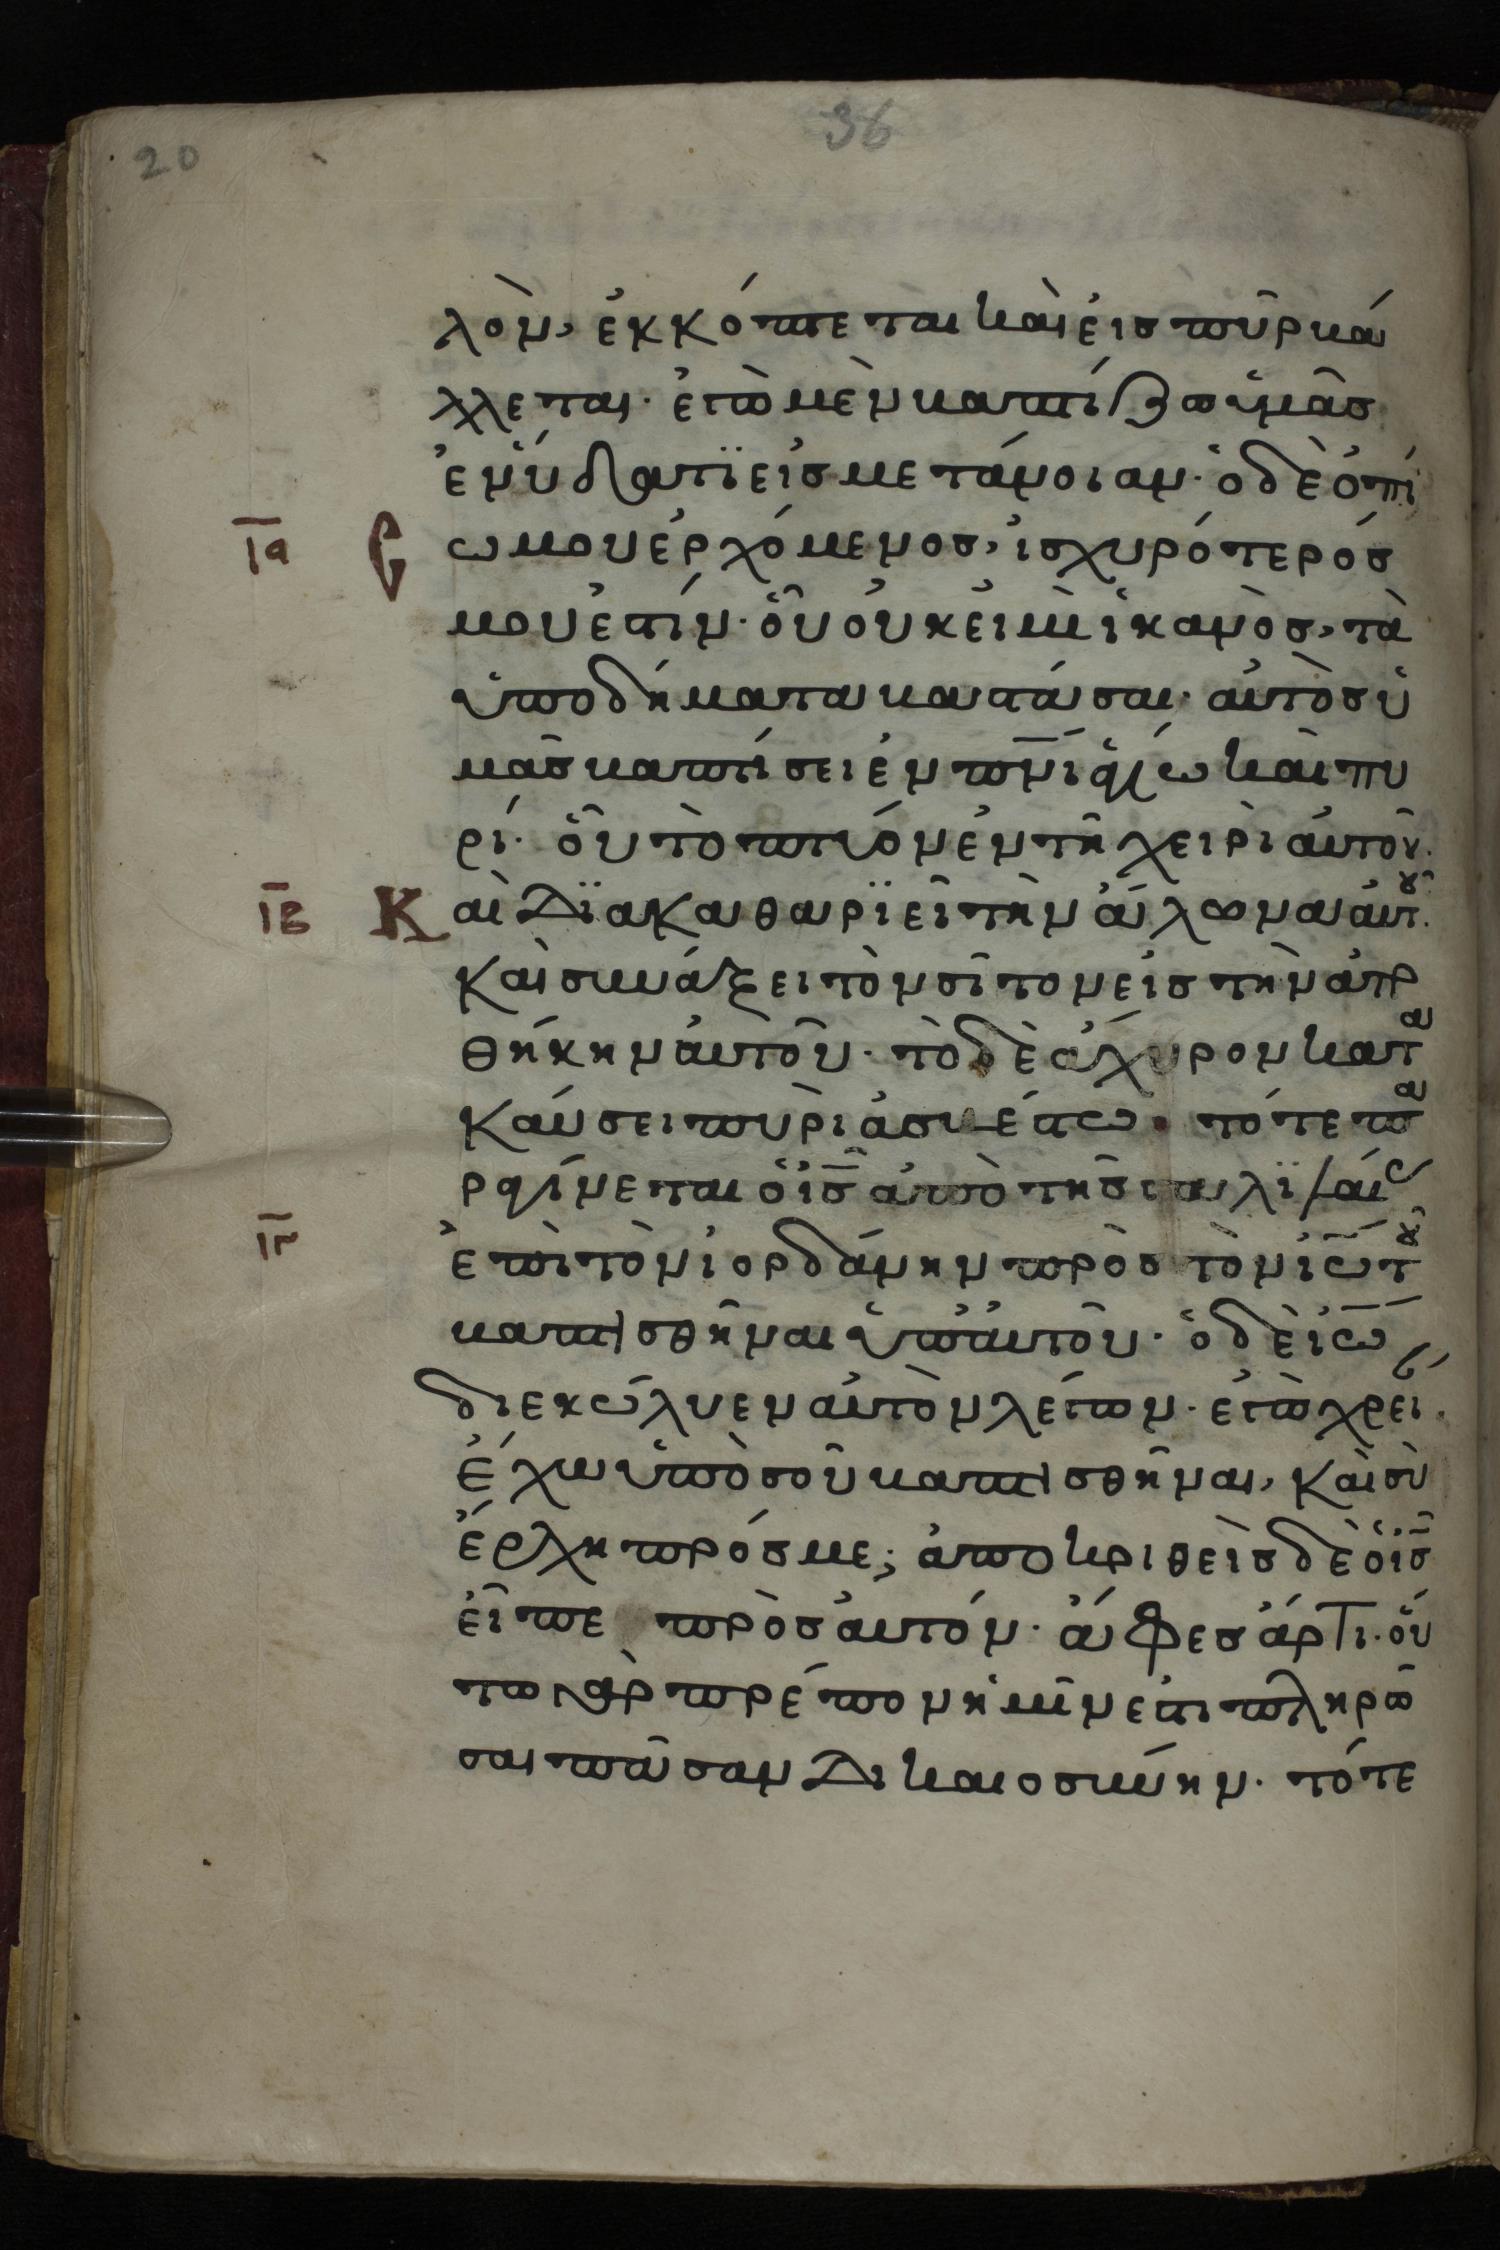 20 36
λον, ἐκκόπτεται καὶ εἰς πῦρ βά
λλεται· ἐγὼ μὲν βαπτίζω ὑμᾶς
ἐν ὕδατϊ εἰς μετάνοιαν· ὁ δὲ ὀπί
ια σω μου ἐρχόμενος, ἰσχυρότερός
μου ἐστίν· οὗ οὐκ εἰμὶ ἱκανὸς, τὰ
ὑποδήματα βαστάσαι· αὐτὸς ὑ
μᾶς βαπτίσει ἐν π̅ν̅ι̅ ἁγίω καὶ πυ
ρί· οὗ τὸ πτύον ἐν τῆ χειρὶ αὐτοῦ.
ιβ Καὶ διακαθαρϊεῖ τὴν ἅλωνα αὐτοῦ.
καὶ συνάξει τὸν σῖτον εἰς τὴν ἀπο
θήκην αὐτοῦ· τὸ δὲ ἄχυρον κατα
καύσει πυρὶ ἀσβέστω· τότε πα
ραγίνεται ὁ ι̅ς̅ ἀπὸ τῆς γαλιλαίας
ιγ ἐπὶ τὸν ἰορδάνην πρὸς τὸν ἰω̅ τοῦ
βαπτισθῆναι ὑπ' αὐτοῦ· ὁ δὲ ἰω̅
διεκώλυεν αὐτὸν λέγων· ἐγὼ χρείαν
ἔχω ὑπὸ σοῦ βαπτισθῆναι, καὶ σὺ
ἔρχη πρός με; ἀποκριθεὶς δὲ ὁ ι̅ς̅
εἶπε πρὸς αὐτόν· ἄφες ἄρτι· οὕ
τω γὰρ πρέπον ἡμῖν ἐστι πληρῶ
σαι πᾶσαν δικαιοσύνην· τότε